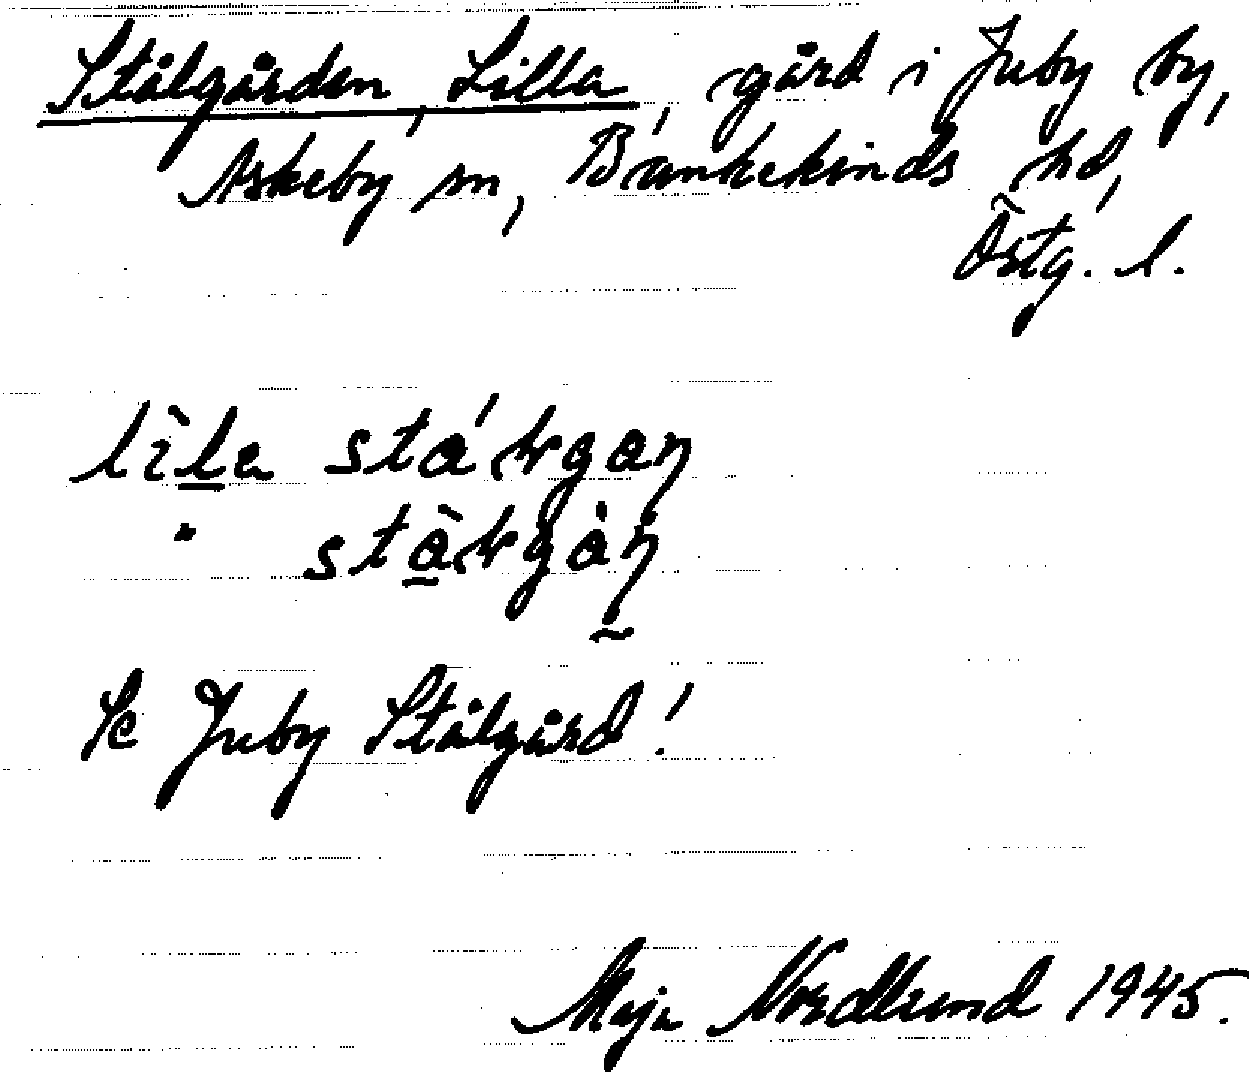 Stålgården, Lilla, gård i Juby by,
Askeby sn, Bankekinds hd,
Östg. l.
lìla
"
Se Juby Stålgård!
Maja Nordlund 1945.